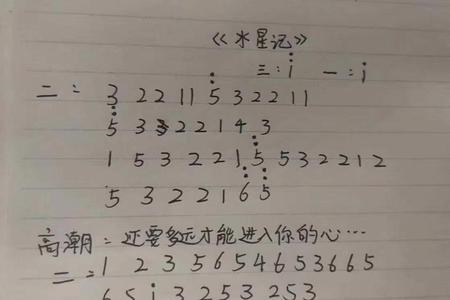 《水星记》
三：i 一：j
二：3 2 2 1 1 5 3 2 2 1 1
5 3 3 2 2 1 4 3
1 5 3 2 2 1 5 5 3 2 2 1 2
5 3 2 2 1 6 5
高潮：还要多远才能进入你的心…
二：1 2 3 5 6 5 4 6 5 3 6 6 5
6 5 i 3 2 5 3 2 5 3